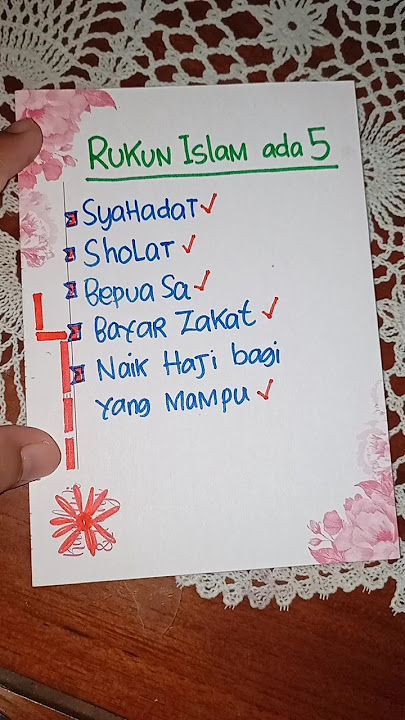 RUKUN ISLAM ada 5
SyaHadaT
SHoLaT
BepuaSa
BaYaR ZaKat
NaiK HaJi bagi
Yang MaMpu